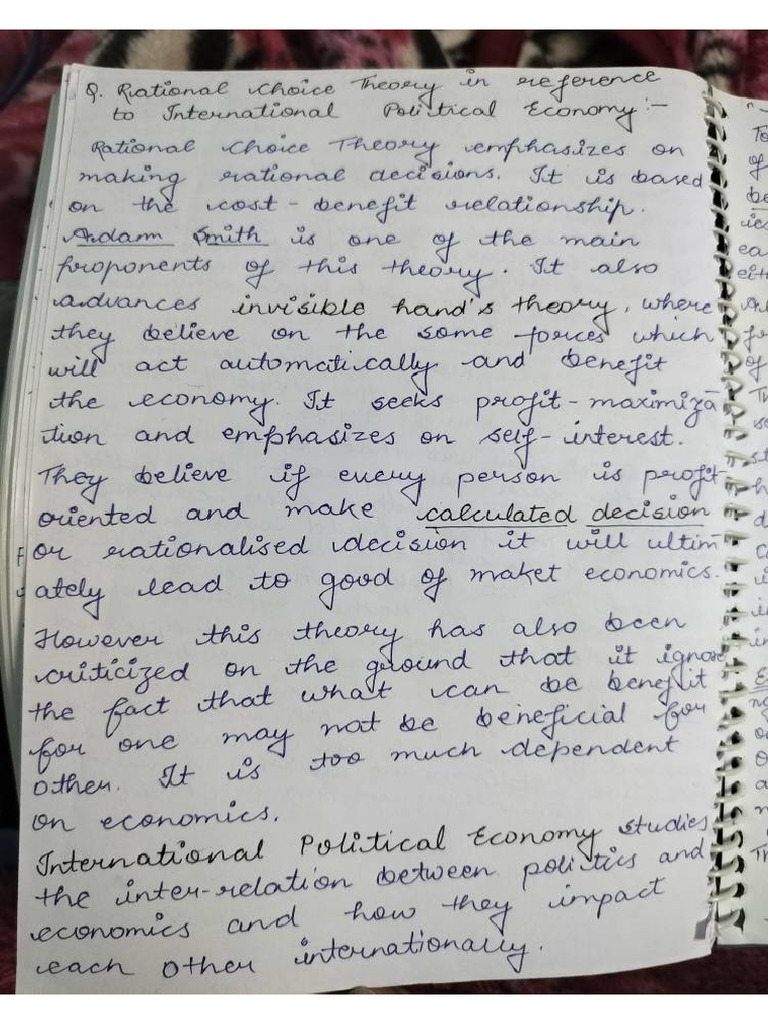 Q. Rational Choice Theory in reference
to International Political Economy :-
Rational Choice Theory emphasizes on
making rational decisions. It is based
on the cost-benefit relationship.
Adam Smith is one of the main
proponents of this theory. It also
advances invisible hand's theory, where
they believe on the some forces which
will act automatically and benefit
the economy. It seeks profit-maximiza
tion and emphasizes on self-interest.
They believe if every person is profit
oriented and make calculated decision
or rationalised decision it will ultim
ately lead to good of maket economics.
However this theory has also been
criticized on the ground that it ignore
the fact that what can be benefit
for one may not be beneficial for
other. It is too much dependent
on economics.
International Political Economy studies
the inter-relation between politics and
economics and how they impact
each other internationally.